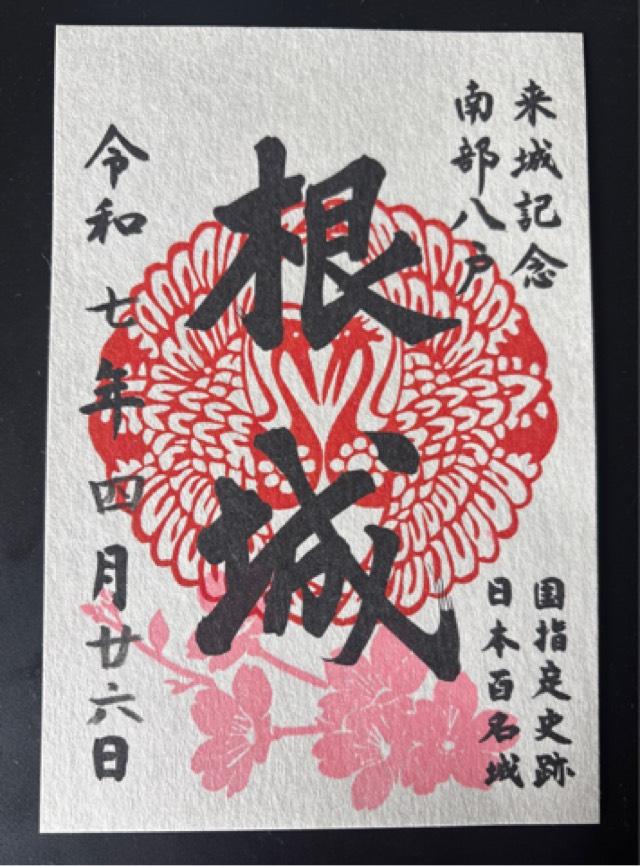 来城記念
南部八戸
根城
国指定史跡
日本百名城
令和七年四月廿六日